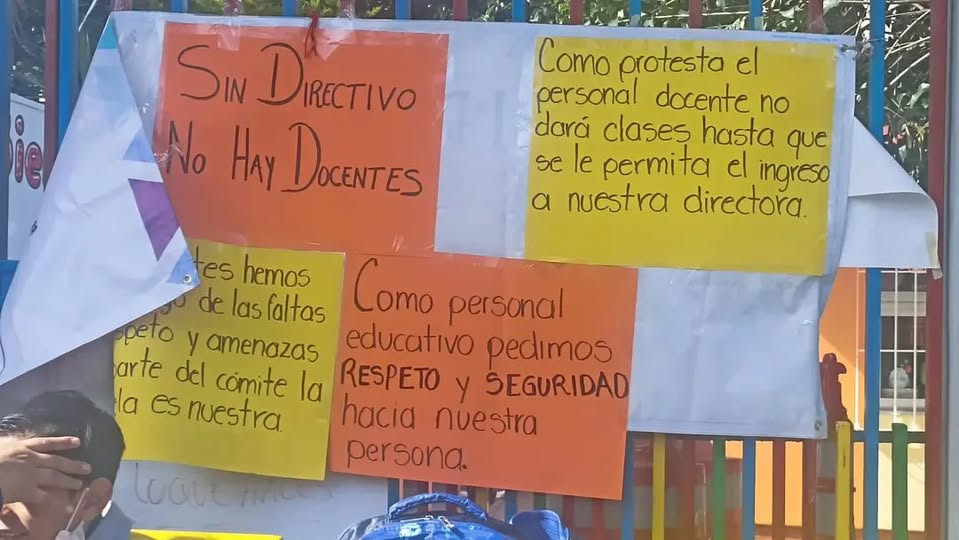 SIN DIRECTIVO
NO HAY DOCENTES
Como protesta el
personal docente no
dará clases hasta que
se le permita el ingreso
a nuestra directora.
hemos
de las faltas
y amenazas
del cómite la
es nuestra.
Como personal
educativo pedimos
RESPETO y SEGURIDAD
hacia nuestra
persona.